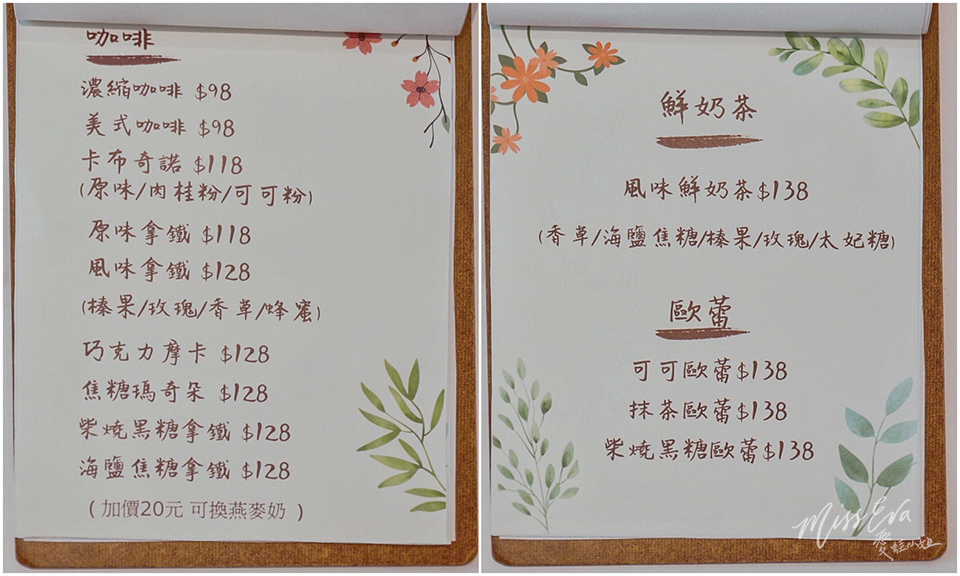 咖啡
濃縮咖啡 $98
美式咖啡 $98
卡布奇諾 $118
(原味/肉桂粉/可可粉)
原味拿鐵 $118
風味拿鐵 $128
(榛果/玫瑰/香草/蜂蜜)
巧克力摩卡 $128
焦糖瑪奇朵 $128
柴燒黑糖拿鐵 $128
海鹽焦糖拿鐵 $128
(加價20元 可換燕麥奶 )
鮮奶茶
風味鮮奶茶$138
(香草/海鹽焦糖/榛果/玫瑰/太妃糖)
歐蕾
可可歐蕾$138
抹茶歐蕾$138
柴燒黑糖歐蕾$138
Miss Eva
愛娃小姐